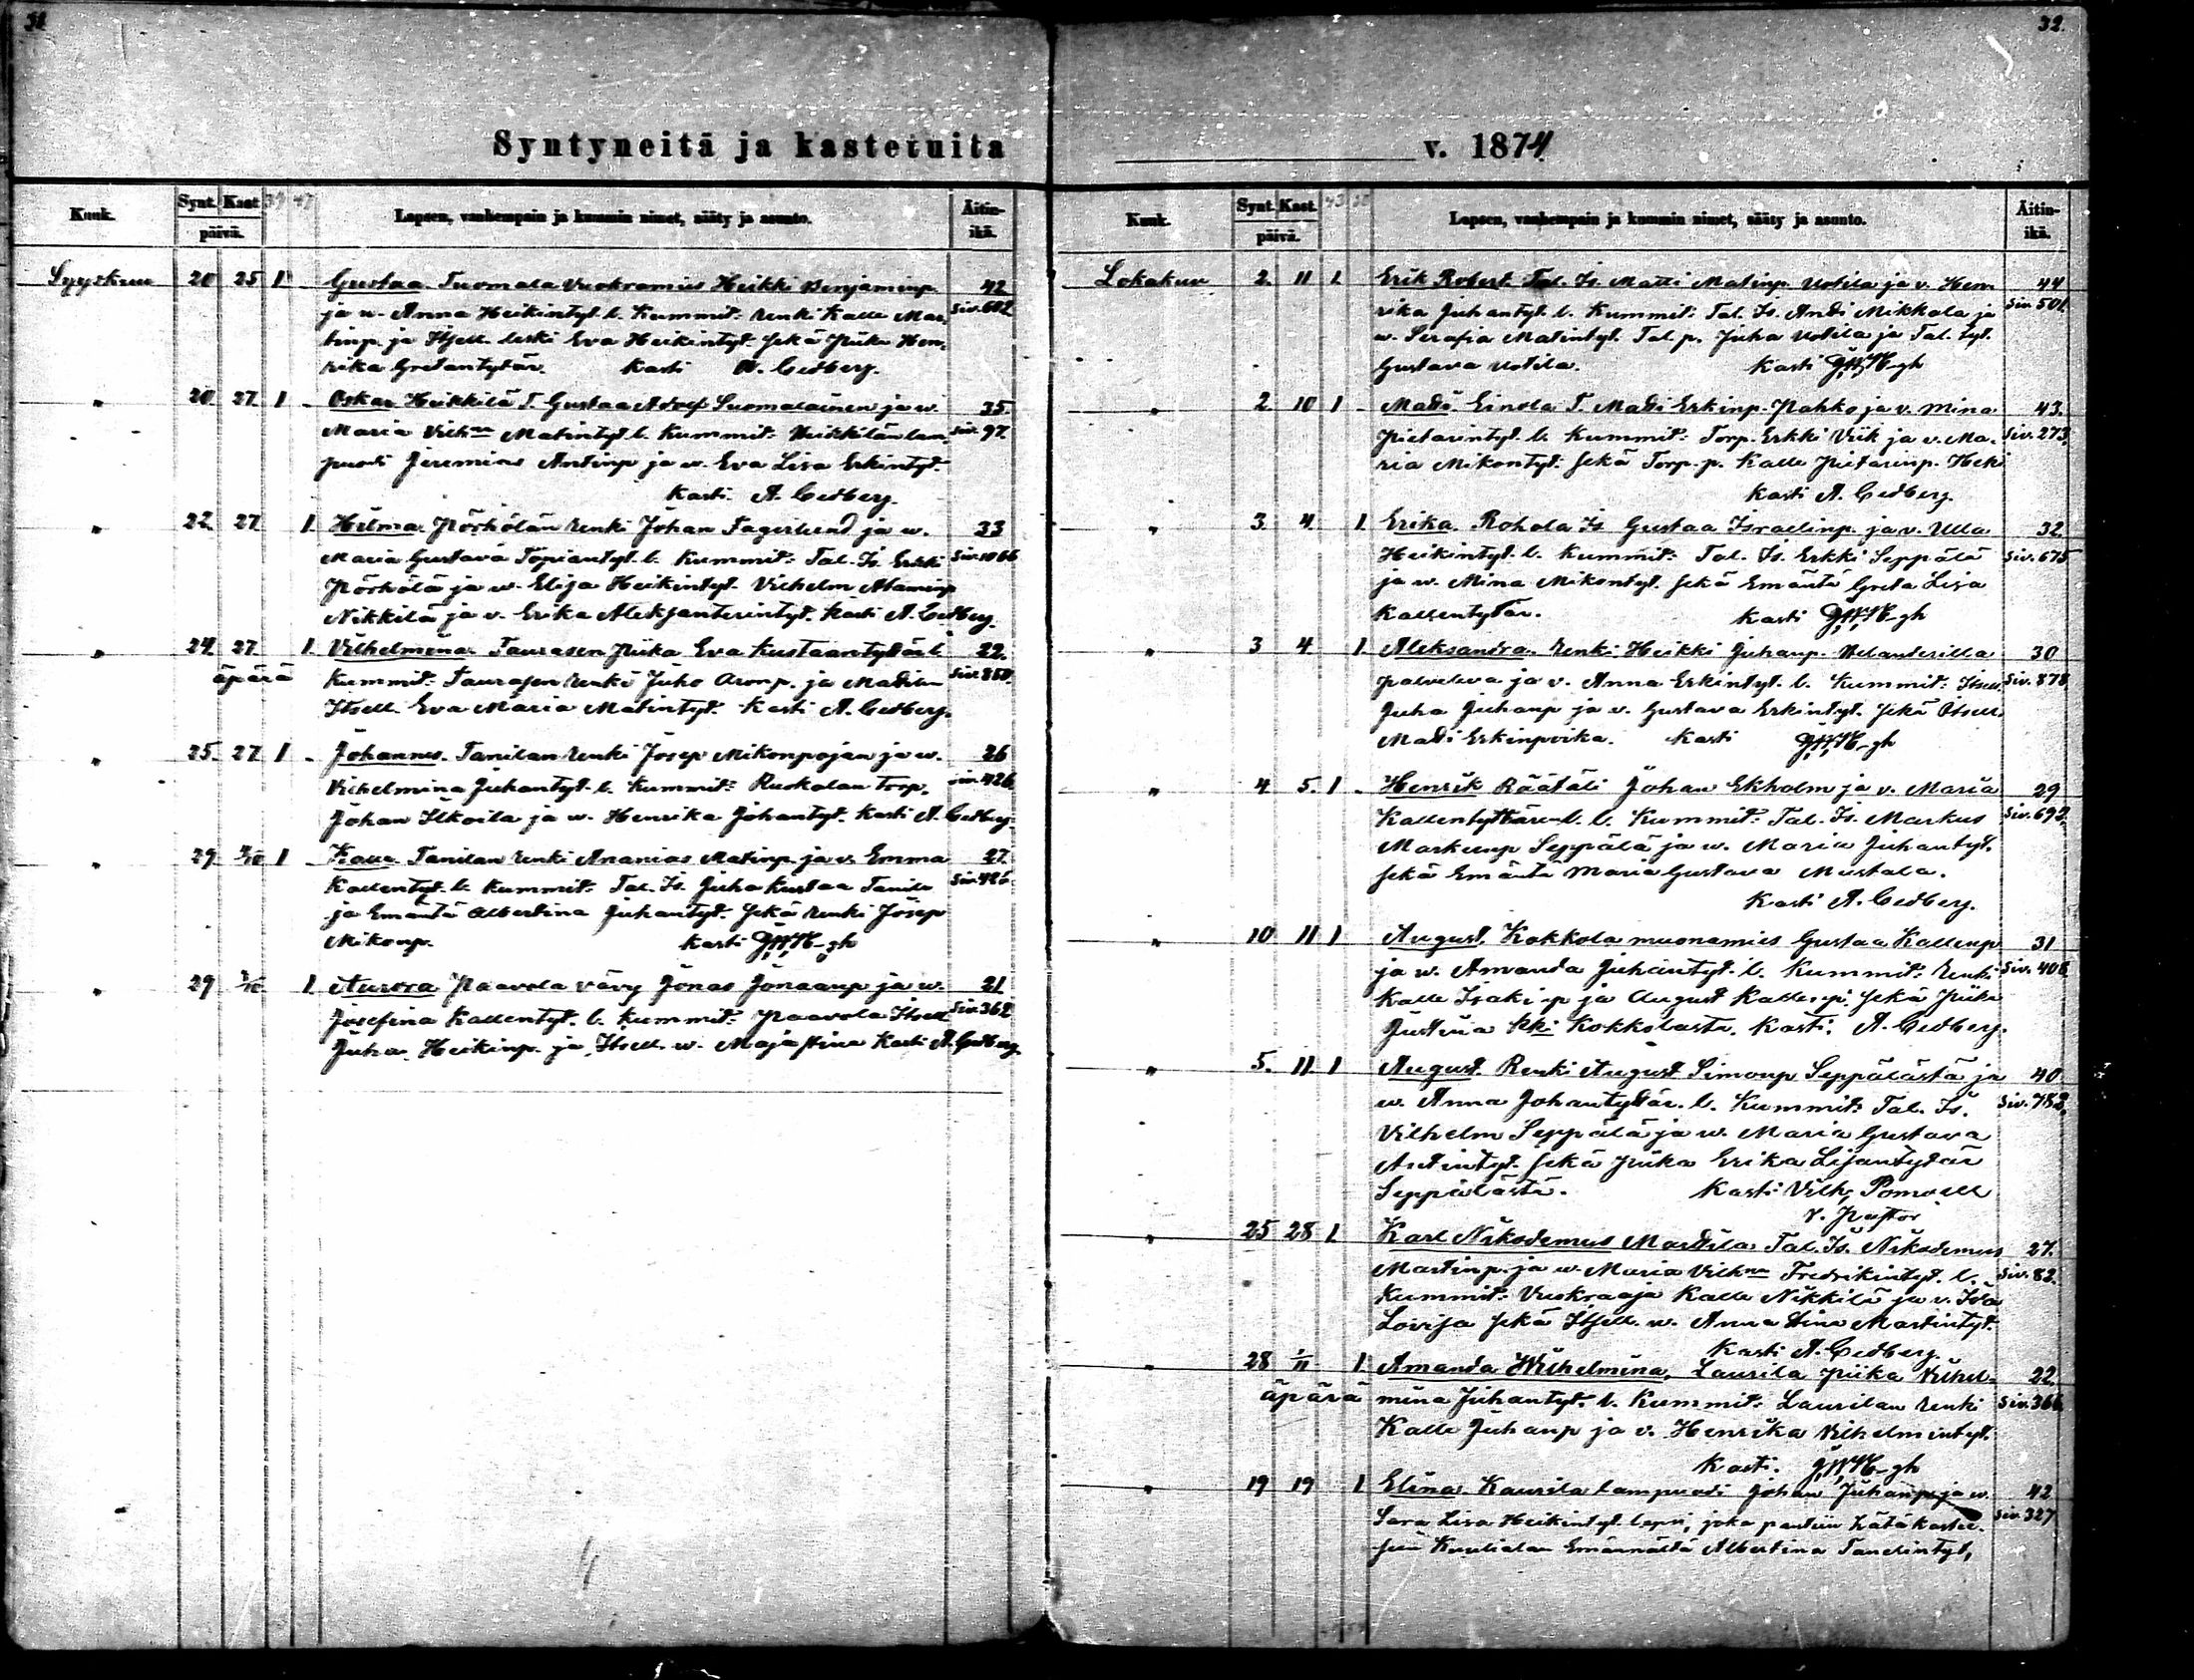 32.
Syntyneitä ja kastetuita
Kuuk. Synt. Kast. 39 47 Lapsen, vanhempain ja kummin nimet, sääty ja asunto. Äitin-
päivä. ikä.
Syyskuu 20 25 1 Gustaa. Tuomala Vuokramies Heikki Benjaminp. 42
ja w. Anna Heikintyt. l. Kummit: Renki Kalle Mar- Siv. 602
tinp. ja Itsell. leski Eva Heikintyt. sekä Piika Hen-
rika Gretantytär. Kasti A. Cedberg.
" 20. 27. 1 Oskar Heikkilä T. Gustaa Adolf Suomalainen ja w. 35.
Maria Vilhna Matintyt. l. Kummit: Heikkilän lam- Siv. 97.
puoti Jeremias Antinp ja w. Eva Lisa Erkintyt.
Kasti A. Cedberg.
" 22. 27 1. Hilma. Pörhölän Renki Johan Fagerlund ja w. 33
Maria Gustava Topiantyt. l. Kummit: Tal. Is. Erkki Siv. 1066
Pörhölä ja w. Elisa Heikintyt. Vilhelm Ataminp
Nikkilä ja v. Erika Aleksanterintyt. Kasti A. Cedberg.
" 24 27. 1. Vilhelmina. Taurasen Piika Eva Kustaantytär l. 22.
äpärä Kummit: Taurasen Renki Juho Aronp. ja
Itsell. Eva Maria Matintyt. Kasti A. Cedberg.
" 25. 27 1 Johannes. Tanilan Renki Josep Mikonpojan ja w. 26
Vilhelmina Juhantyt. l. Kummit: Ruokolan torp. Siv. 426
Johan Ilkoila ja w. Henrika Johantyt. Kasti A. Cedberg.
" 29. 1 Kalle. Tanilan Renki Ananias Matinp. ja v. Emma 27.
Kallentyt. l. Kummit: Tal. Is. Juha Kustaa Tanila Siv. 426.
ja Emäntä Albertina Juhantyt. sekä Renki Josep
Mikonp. Kasti
" 29 1 Aurora Paavola vävy Jonas Jonaanp ja w. 21
Josefina Kallentyt. l. Kummit: Paavola Itsell Siv. 362
Juha. Heikinp. ja Itsell. w. Maja Stina Kasti A. Cedberg.
32.
v. 1874
Kuuk. Synt. Kast. Lapsen, vanhempain ja kummin nimet, sääty ja asunto. Äitin-
päivä. ikä.
Lokakuu 2. 11 1. Erik Robert. Tal. Is. Matti Matinp. Uotila ja v. Hen- 44
rika Juhantyt. l. Kummit: Tal. Is. Anti Mikkola ja Siv. 501.
w. Serafia Matintyt. Tal. p. Juha Uotila ja Tal. tyt.
Gustava Uotila. Kasti
" 2. 10 1 Matti. Einola T. Matti Erkinp. Pahko ja v. Mina 43.
Pietarintyt. l. Kummit: Torp. Erkki Viik ja v. Ma- Siv. 273.
ria Mikontyt. sekä Torp. p. Kalle Pietarinp. Hek
Kasti A. Cedberg.
" 3. 4. 1. Erika. Rohola Is. Gustaa Israelinp. ja v. Ulla 32.
Heikintyt. l. Kummit: Tal. Is. Erkki Seppälä Siv. 675
ja w. Mina Mikontyt. sekä Emäntä Greta Lisa
Kallentytär. Kasti
" 3 4. 1. Aleksandra. Renki Heikki Juhanp. Velanderilla 30
palveleva ja v. Anna Erkintyt. l. Kummit: Itsell. Siv. 878
Juha Juhanp ja w. Gustava Erkintyt. sekä Itsell.
Matti Erkinpoika. Kasti
" 4. 5. 1 Henrik Räätäli Johan Ekholm ja v. Maria 29
Kallentyttären l. l. Kummit: Tal. Is. Markus Siv. 692.
Markunp Seppälä ja w. Maria Juhantyt.
sekä Emäntä Maria Gustava Mustala.
Kasti A. Cedberg.
" 10 11 1 August. Kokkola muonamies Gustaa Kallenp 31
ja w. Amanda Juhantyt. l. Kummit: Renki Siv. 406.
Kalle Isakinp ja August Kallenp. sekä Piika
Justina Kokkolasta. Kasti. A. Cedberg.
" 5. 11 1 August. Renki August Simonp Seppälästä ja 40.
w. Anna Johantytär. l. Kummit: Tal. Is. Siv. 782.
Vilhelm Seppälä ja w. Maria Gustava
Antintyt. sekä Piika Erika Lisantytär
Seppälästä. Kasti Vilh. Pomoell
v. Pastor
" 25 28 1. Karl Nikodemus Marttila Tal. Is. Nikodemus 27.
Martinp. ja w. Maria Vilhna Fredrikintyt. l. Siv. 82.
Kummit: Vuokraaja Kalle Nikkilä ja v. Ida
Lovisa sekä Itsell. w. Anna Stina Martintyt.
Kasti A. Cedberg.
" 28 1/11 1. Amanda Wilhelmina. Laurila Piika Vilhel- 22.
äpärä mina Juhantyt. l. Kummit: Laurilan Renki Siv. 366.
Kalle Juhanp ja v. Henrika Vilhelmintyt.
Kasti.
" 19 19 1 Elina Kaurila lampuodi Johan Juhanp ja w. 42
Sara Lisa Heikintyt. lapsi, joka pantiin hätäkastee- Siv. 327
sen Kaulialan Emännältä Albertina Tanelintyt,